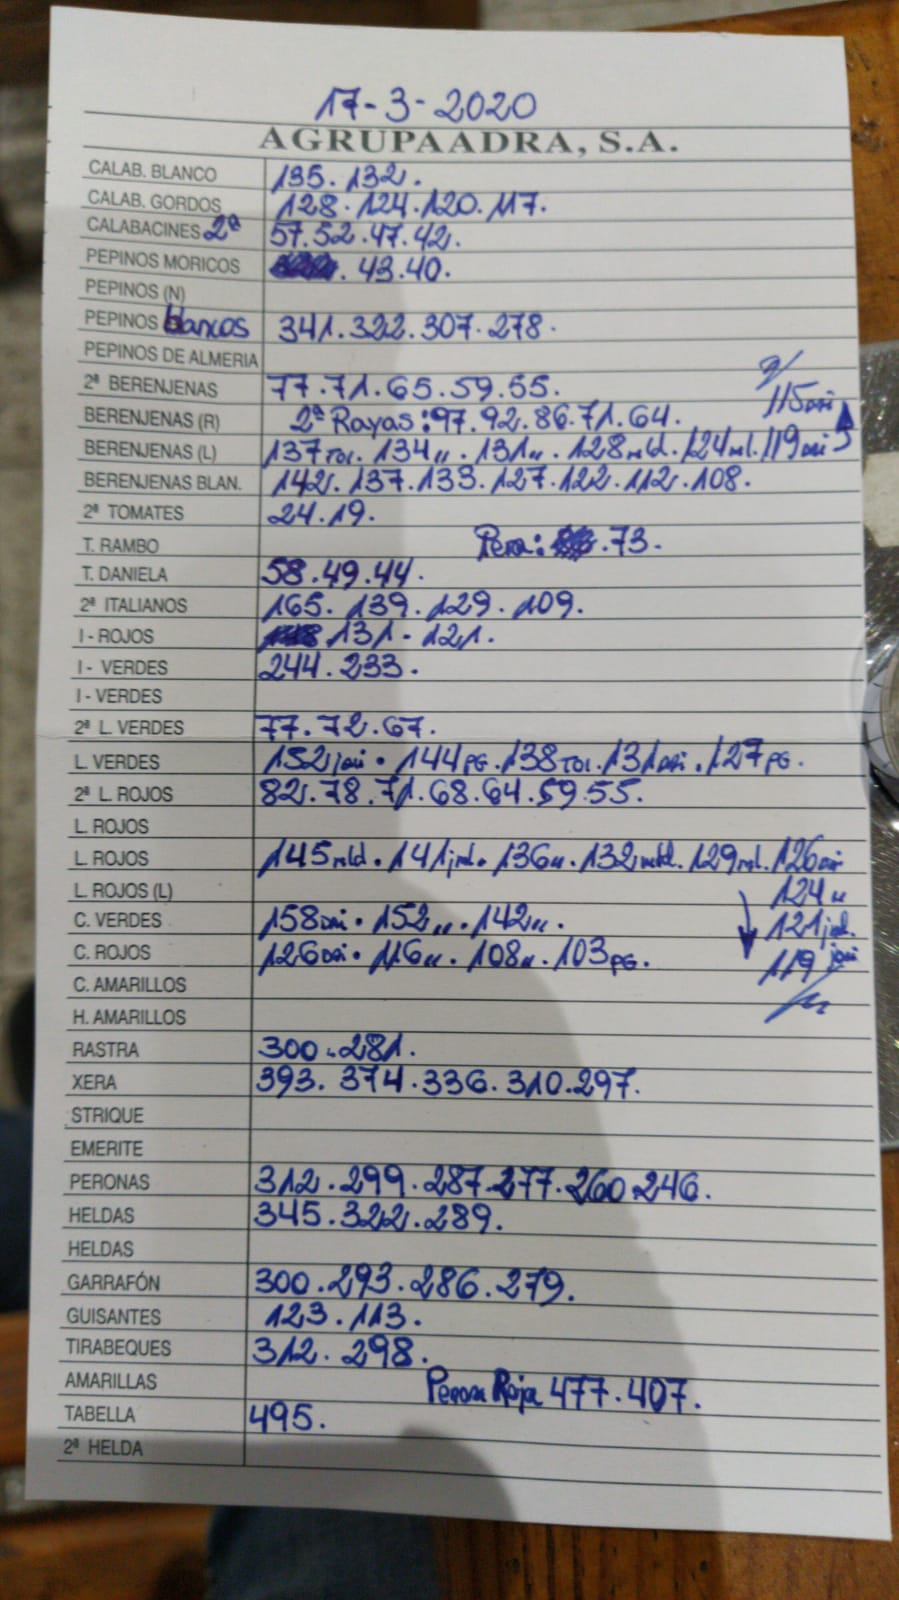 17-3-2020
AGRUPAADRA, S.A.
CALAB. BLANCO 135. 132.
CALAB. GORDOS 128. 124. 120. 117.
CALABACINES 2ª 57. 52. 47. 42.
PEPINOS MORICOS . 43. 40.
PEPINOS (N)
PEPINOS blancos 341. 322. 307. 278.
PEPINOS DE ALMERIA
2ª BERENJENAS 77. 71. 65. 59. 55.
115
BERENJENAS (R) 2ª Rayas: 97. 92. 86. 71. 64.
BERENJENAS (L) 137 TOI. 134 ". 131 ". 128 mld. 124 ml. 119
BERENJENAS BLAN. 142. 137. 133. 127. 122. 112. 108.
2ª TOMATES 24. 19.
T. RAMBO Pera: . 73.
T. DANIELA 58. 49. 44.
2ª ITALIANOS 165. 139. 129. 109.
I - ROJOS 131 - 121.
I - VERDES 244. 233.
I - VERDES
2ª L. VERDES 77. 72. 67.
L. VERDES 152 . 144 PG. 138 TOI. 131 . 127 PG.
2ª L. ROJOS 82. 78. 71. 68. 64. 59. 55.
L. ROJOS
L. ROJOS 145 mld. 141 jml. 136 ". 132 mld. 129 ml. 126
L. ROJOS (L) 124 "
C. VERDES 158 . 152 ". 142 ". 121 jml.
C. ROJOS 126 . 116 ". 108 ". 103 PG. 119
C. AMARILLOS
H. AMARILLOS
RASTRA 300. 281.
XERA 393. 374. 336. 310. 297.
STRIQUE
EMERITE
PERONAS 312. 299. 287. 277. 260 246.
HELDAS 345. 322. 289.
HELDAS
GARRAFÓN 300. 293. 286. 279.
GUISANTES 123. 113.
TIRABEQUES 312. 298.
AMARILLAS Perona Roja 477. 407.
TABELLA 495.
2ª HELDA